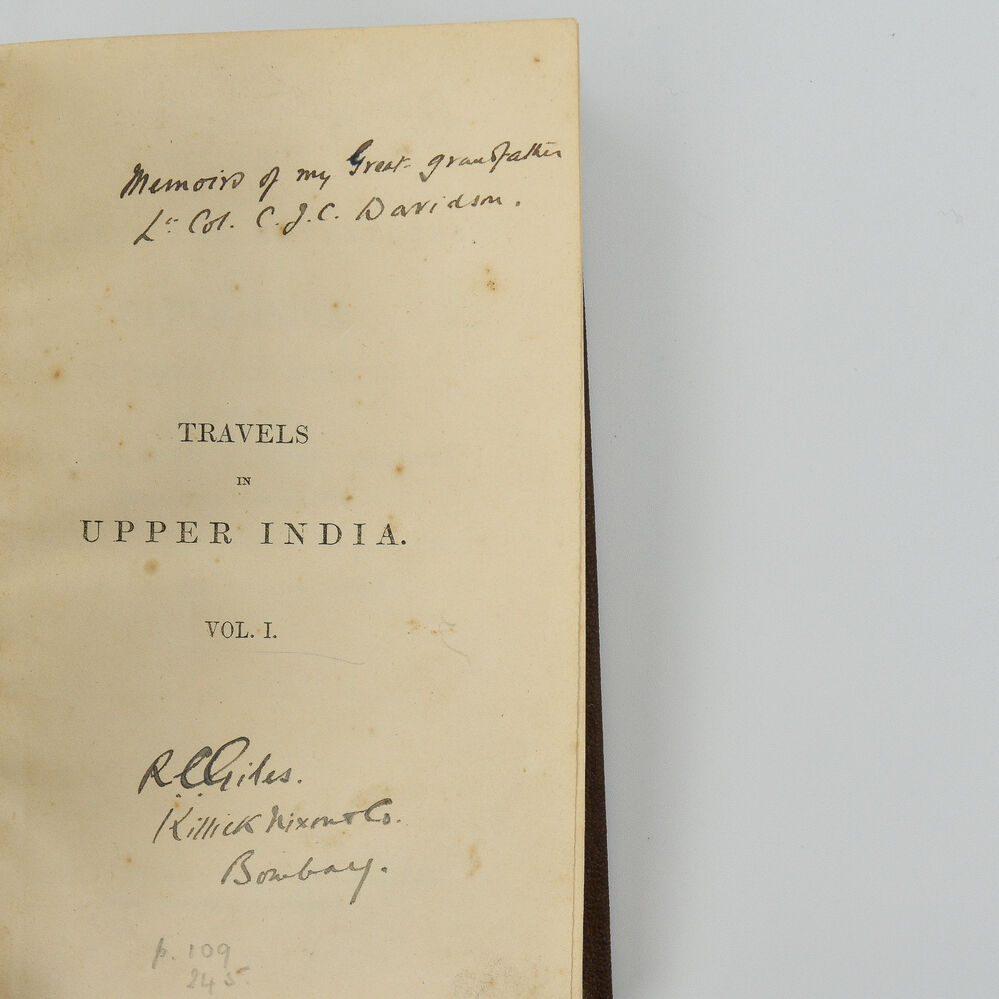 Memoirs of my Great-grandfather
Lt. Col. C.J.C. Davidson.
TRAVELS
IN
UPPER INDIA.
VOL. I.
R.C. Giles.
Killick Nixon & Co.
Bombay.
p. 109
245